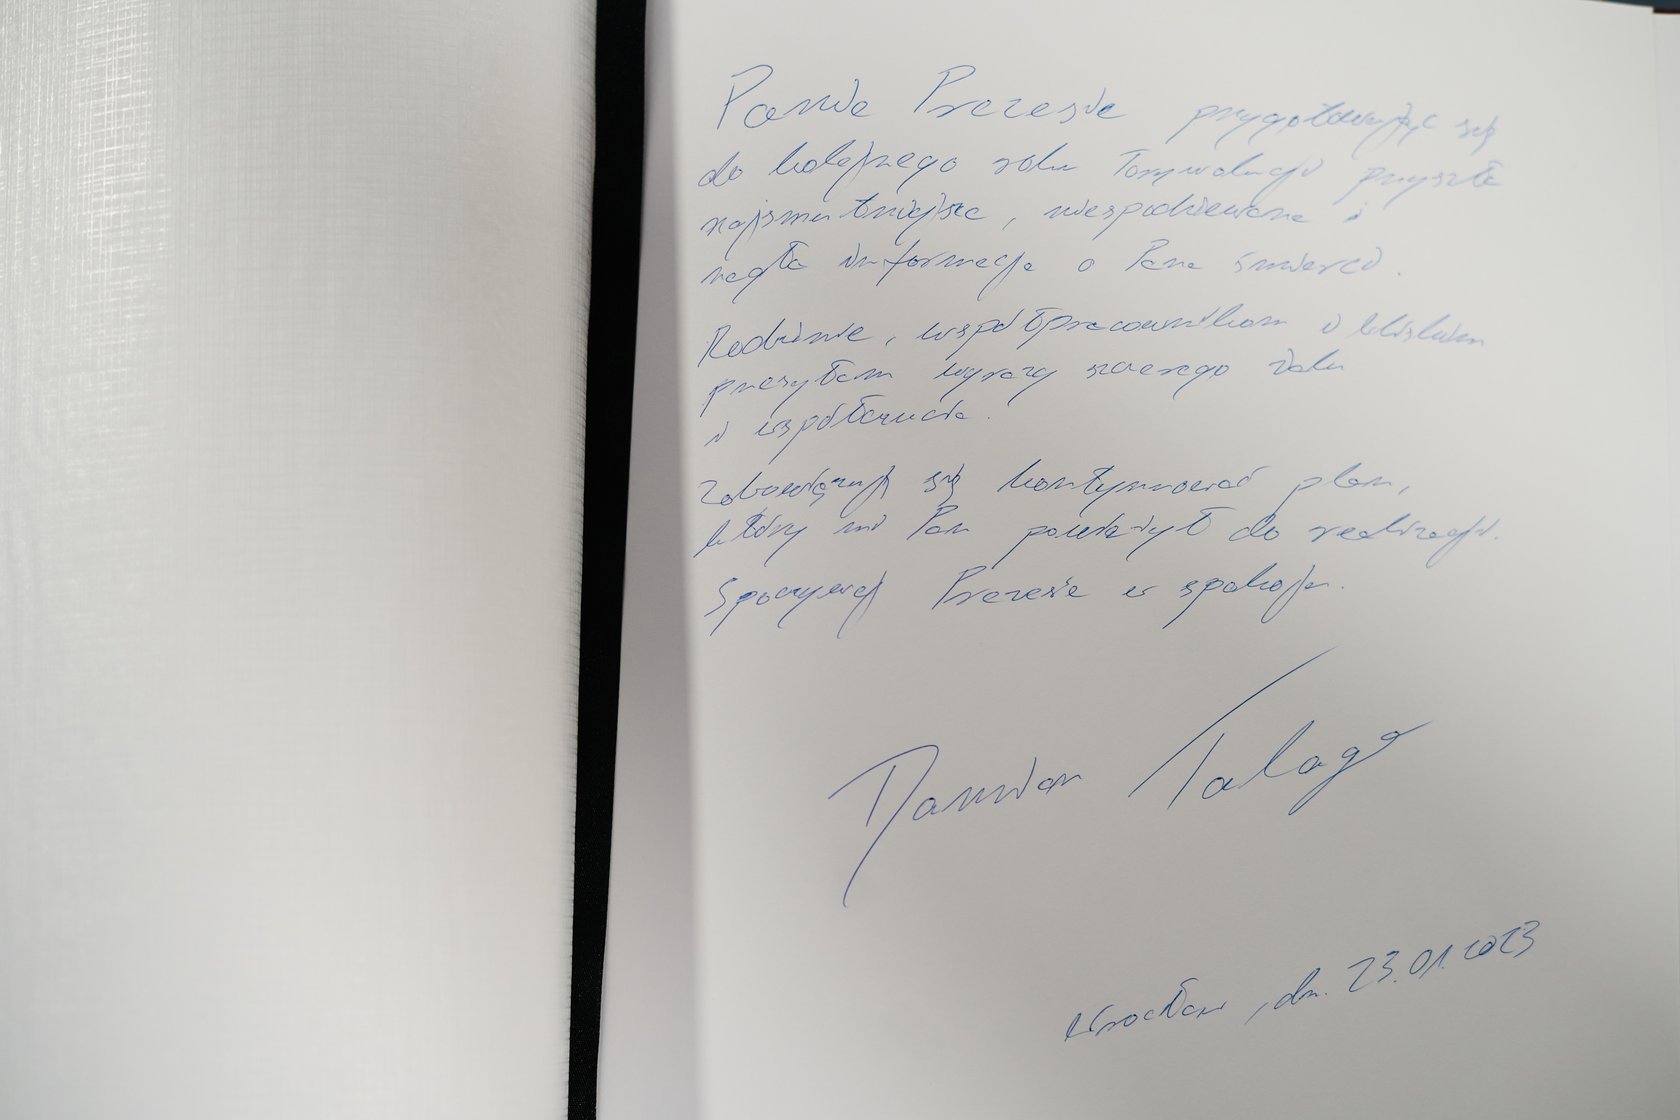 Panie Prezesie przygotowując się
do kolejnego roku Torywolucji przyszła
najsmutniejsza, niespodziewana i
nagła informacja o Pana śmierci.
Rodzinie, współpracownikom i bliskim
przesyłam wyrazy szczerego żalu
i współczucia.
Zobowiązuję się kontynuować plan,
który mi Pan powierzył do realizacji.
Spoczywaj Prezesie w spokoju.
Damian Talaga
Wrocław, dn. 23.01.2023